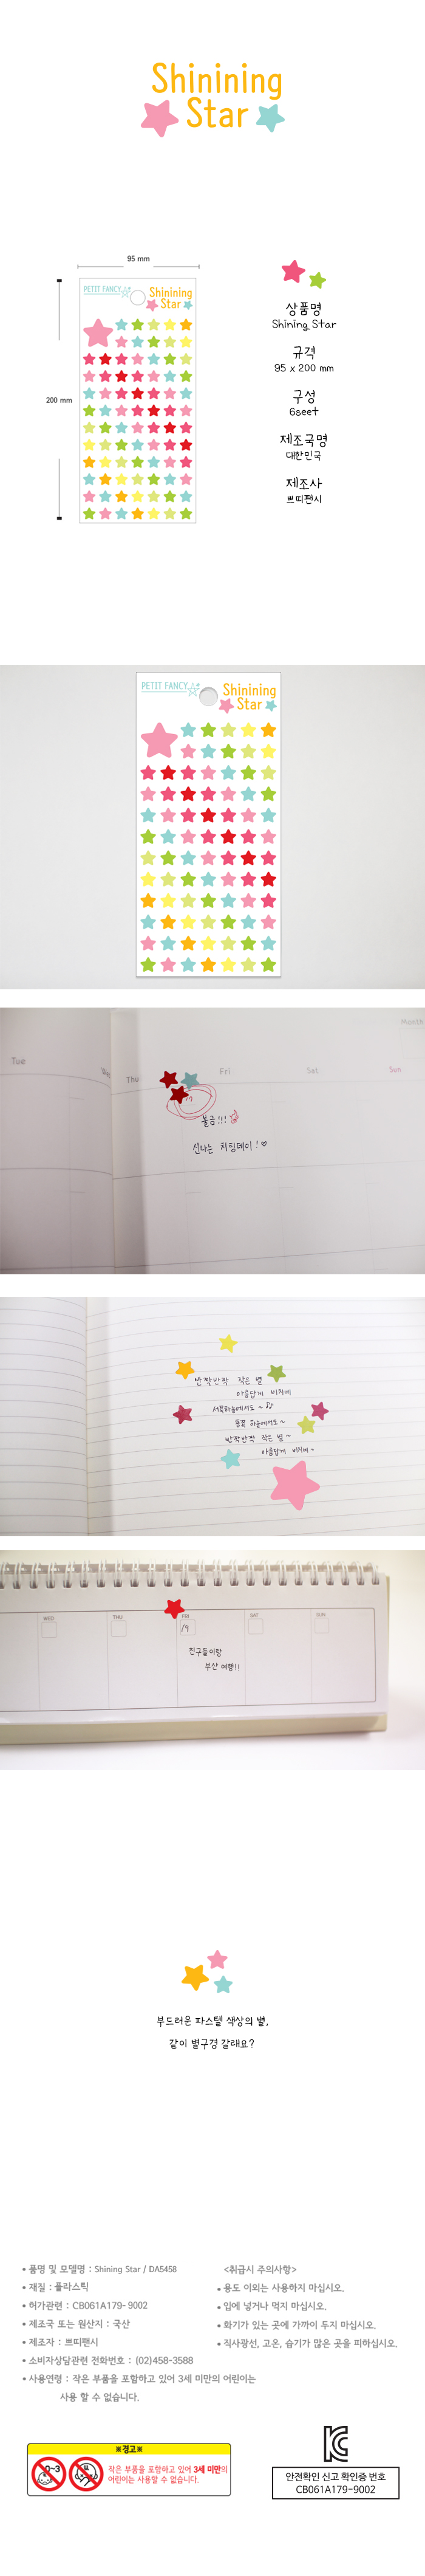 Shinining
Star
95 mm
200 mm
PETIT FANCY
Shinining
Star
상품명
Shining Star
규격
95 x 200 mm
구성
6seet
제조국명
대한민국
제조사
쁘띠팬시
PETIT FANCY
Shinining
Star
Month
Tue
Thu
Fri
Sat
Sun
불금!!!
신나는 치핑데이!♡
반짝반짝 작은 별
아름답게 비치네
서쪽하늘에서도 ~ ♫
동쪽 하늘에서도~
반짝반짝 작은 별~
아름답게 비치네~
WED
THU
FRI
SAT
SUN
19
친구들이랑
부산 여행!!
부드러운 파스텔 색상의 별,
같이 별구경 갈래요?
• 품명 및 모델명 : Shining Star / DA5458
• 재질 : 플라스틱
• 허가관련 : CB061A179- 9002
• 제조국 또는 원산지 : 국산
• 제조자 : 쁘띠팬시
• 소비자상담관련 전화번호 : (02)458-3588
• 사용연령 : 작은 부품을 포함하고 있어 3세 미만의 어린이는
사용 할 수 없습니다.
<취급시 주의사항>
• 용도 이외는 사용하지 마십시오.
• 입에 넣거나 먹지 마십시오.
• 화기가 있는 곳에 가까이 두지 마십시오.
• 직사광선, 고온, 습기가 많은 곳을 피하십시오.
※경고※
0~3
작은 부품을 포함하고 있어 3세 미만의
어린이는 사용할 수 없습니다.
안전확인 신고 확인증 번호
CB061A179-9002